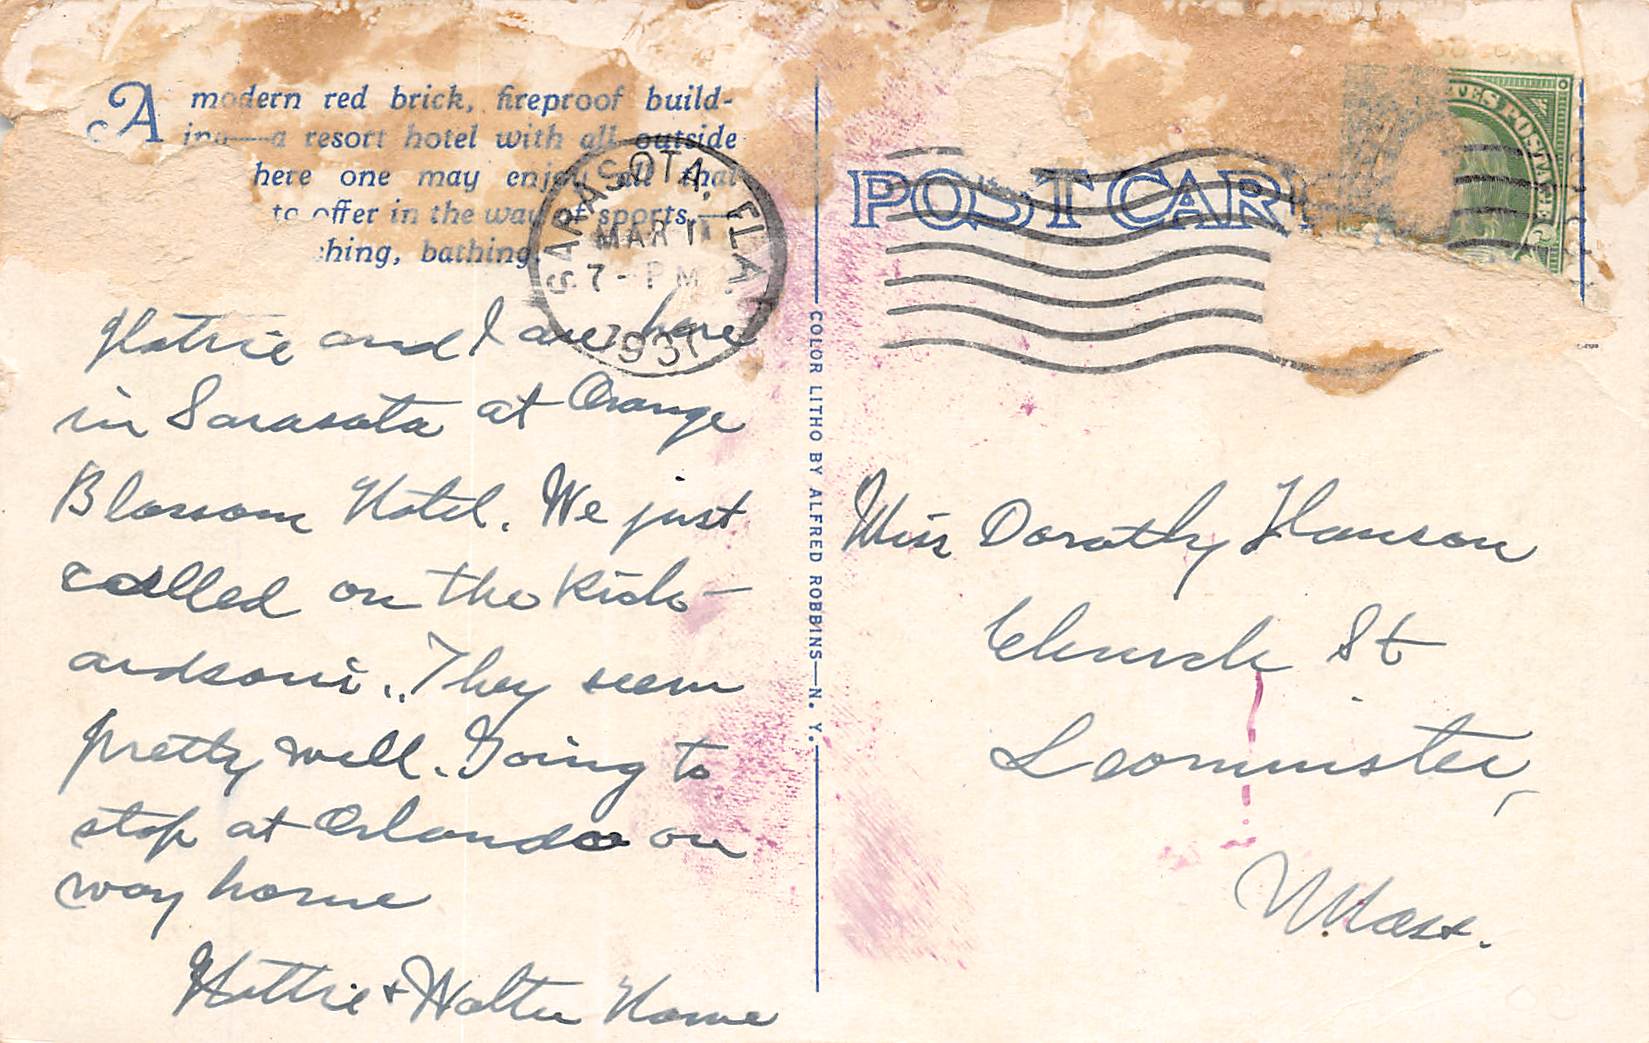 A modern red brick, fireproof build-
ing—a resort hotel with all outside
here one may enjoy all that
to offer in the way of sports,—
hing, bathing,
SARASOTA, FLA.
MAR 11
7-PM
1937
POST CARD
TES POSTAGE
COLOR LITHO BY ALFRED ROBBINS—N. Y.
Hattie and I are here
in Sarasota at Orange
Blossom Hotel. We just
called on the Rich-
ardsons.. They seem
pretty well. Going to
stop at Orlando on
way home
Hattie & Walter Howe
Miss Dorothy Hanson
Church St
Leominster,
Mass.